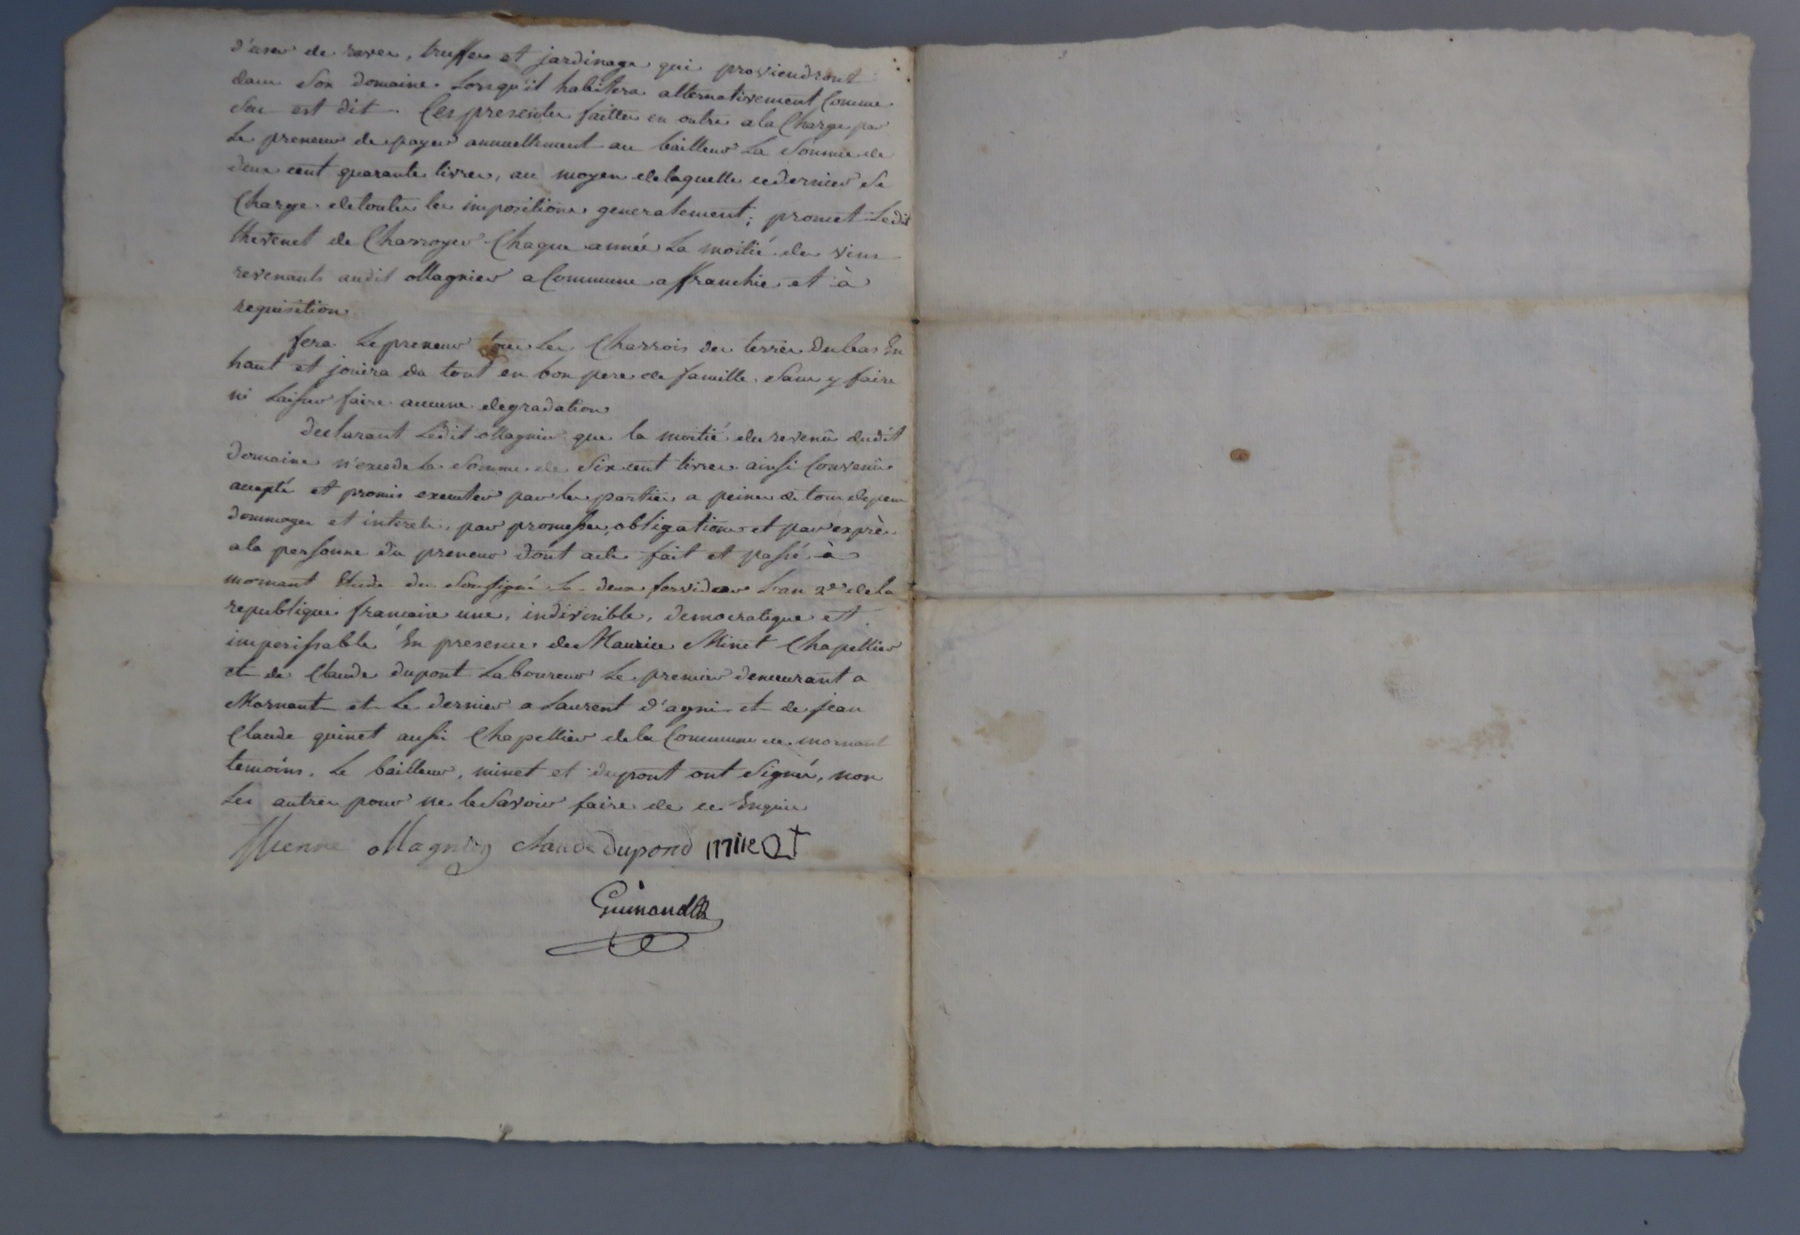 d'user de raves, truffes et jardinage qui proviendront
dans son domaine Lorsqu'il habitera alternativement Comme
sus est dit. Ces presentes faittes en outre a la Charge par
Le preneur de payer annuellement au bailleur La Somme de
deux cent quarante livres, au moyen de laquelle ce dernier se
Charge de toutes les impositions generalement; promet Ledit
thevenet de Charroyer Chaque année La moitié des vins
revenants audit Magnier a Commune affranchie et à
requisition
fera Le preneur tous les Charrois des terres du bas En
haut et jouira du tout en bon pere de famille sans y faire
ni Laisser faire aucune degradation
declarant Ledit Magnier que la moitié du revenu dudit
domaine n'excede La Somme de Six cent livres ainsi Convenu
accepté et promis executer par les parties a peine de tous depens
dommages et interets, par promesses, obligations et par exprès
a la personne du preneur dont acte fait et passé à
mornant Etude du Soussigné le deux fervidor L'an 2e de la
republique francaise une, indivisible, democratique et
imperissable En presence de Maurice Minet Chapellier
et de Claude dupont Laboureur Le premier demeurant a
Mornant et Le dernier a Laurent d'agni et de jean
Claude guinet aussi Chapellier de la Commune de mornant
temoins, Le bailleur, minet et dupont ont Signés, non
Les autres pour ne le Savoir faire de ce Enquis
Magnier Claude dupond mine